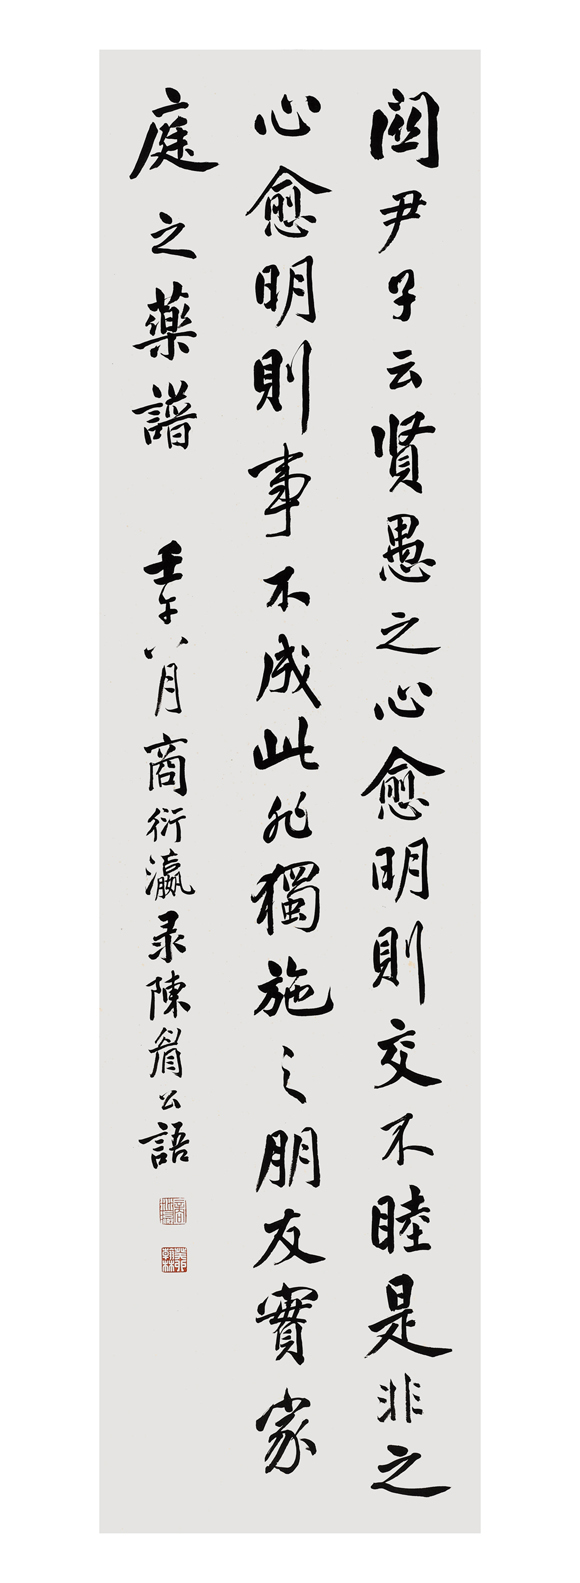 關尹子云賢愚之心愈明則交不睦是非之
心愈明則事不成此非獨施之朋友實家
庭之藥譜 壬午八月商衍瀛录陳眉公語